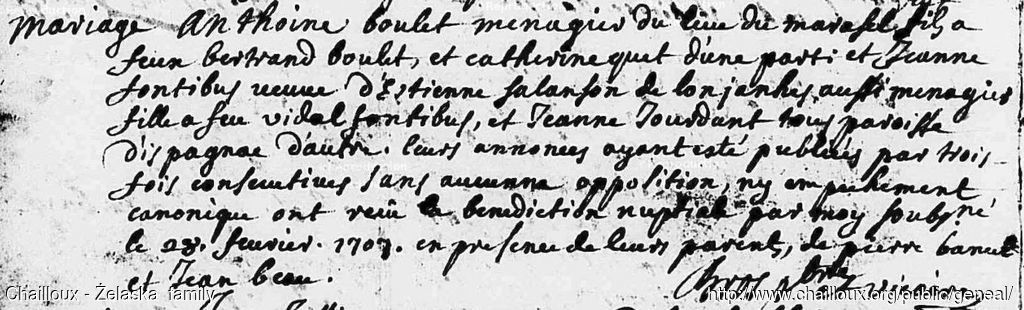 mariage Anthoine boulet menagier du lieu du marasel fil a
feu bertrand boulet, et catherine quet d'une parti et Jeanne
fontibus veuve d'Estienne salanson de lonjanhes aussi menagier
fille a feu vidal fontibus, et Jeanne Jourdant tous paroisse
d'ispagnac d'autre. leurs annonces ayant esté publiées par trois
fois consecutives sans aucunne opposition, ny empechement
canonique ont receu la benediction nuptiale par moy soubsné
le 28. fevrier. 1707. en presence de leurs parents, de pierre
et Jean beau.
vicaire
Chailloux - Želaska family
http://www.chailloux.org/public/geneal/